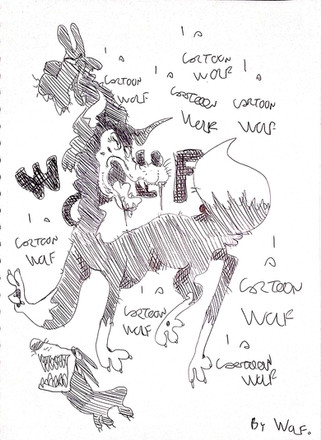 I a
CARTOON
WOLF
I a
CARTOON
WOLF
I a
CARTOON
WOLF
CARTOON
WOLF
WOLF
I a
CARTOON
WOLF
I a
CARTOON
WOLF
I a
CARTOON
WOLF
I a
CARTOOON
WOLF
By WOLF.